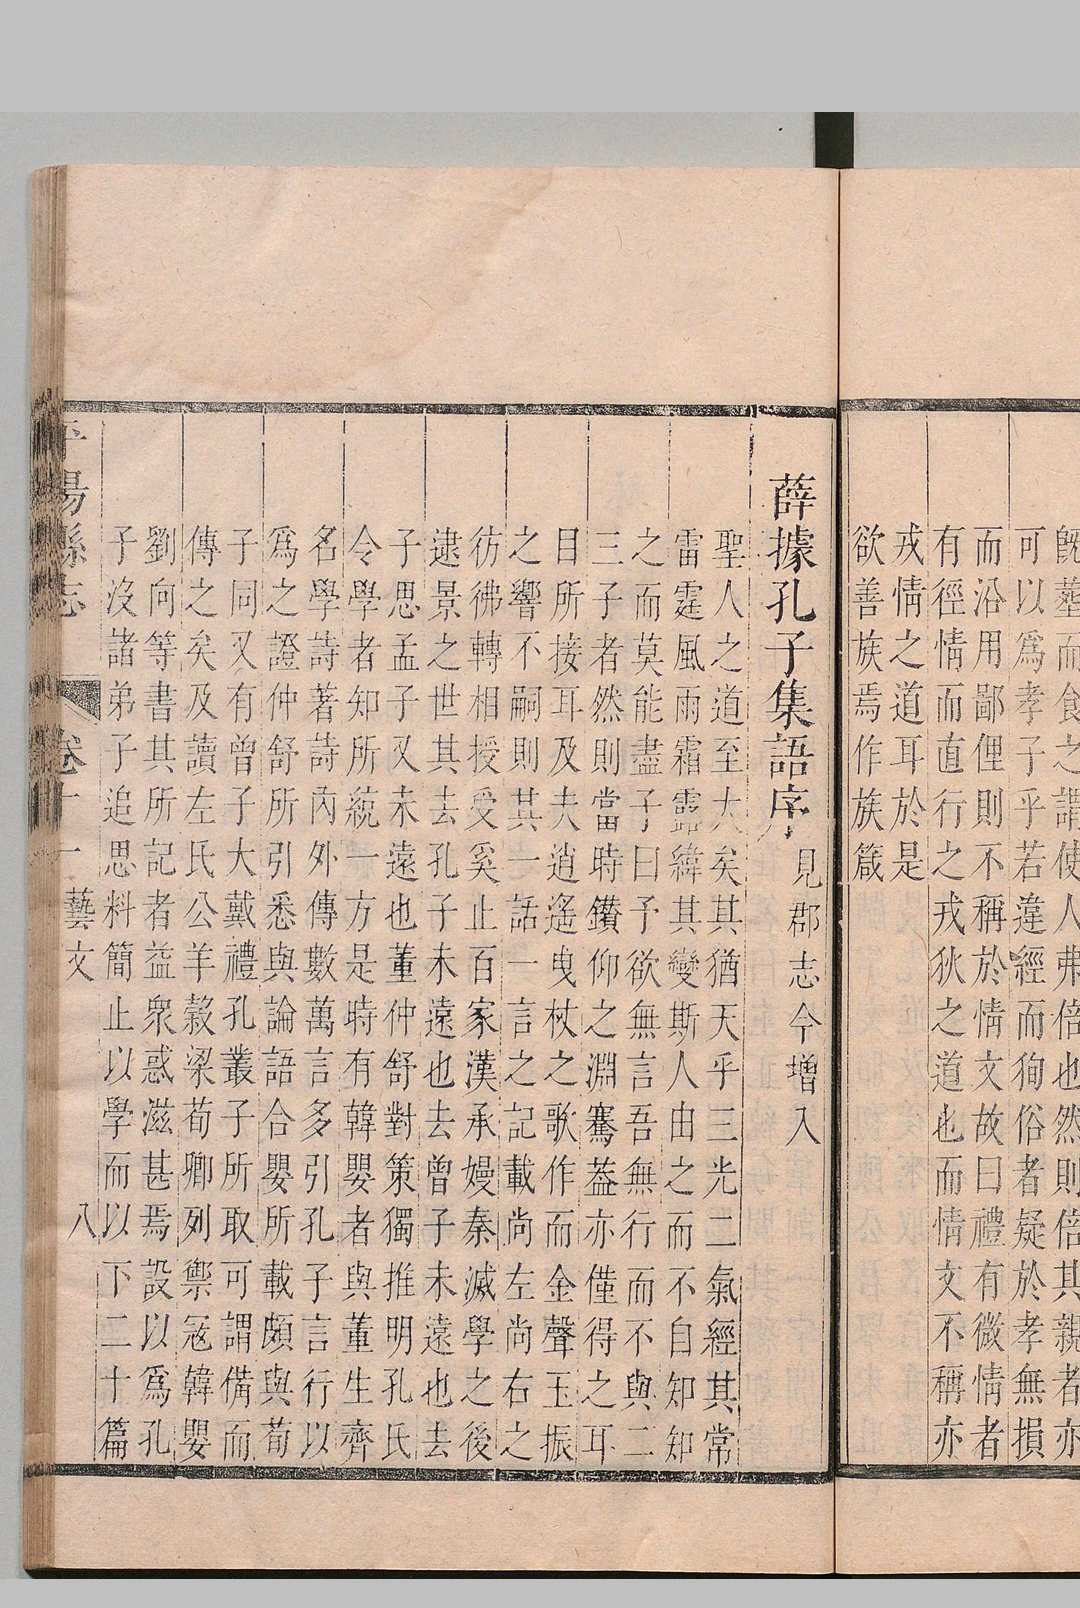 旣葬而食之謂使人弗倍也然則倍其親者亦
可以爲孝子乎若違經而狥俗者疑於孝無損
而沿用鄙俚則不稱於情文故曰禮有微情者
有徑情而直行之戎狄之道也而情文不稱亦
戎情之道耳於是
欲善族焉作族箴
薛據孔子集語序 見郡志今增入
聖人之道至大矣其猶天乎三光二氣經其常
雷霆風雨霜露緯其變斯人由之而不自知知
之而莫能盡子曰予欲無言吾無行而不與二
三子者然則當時鑽仰之淵騫葢亦僅得之耳
目所接耳及夫逍遙曳杖之歌作而金聲玉振
之響不嗣則其一話一言之記載尚左尚右之
彷彿轉相授受奚止百家漢承嫚秦滅學之後
逮景之世其去孔子未遠也去曾子未遠也去
子思孟子又未遠也董仲舒對策獨推明孔氏
令學者知所統一方是時有韓嬰者與董生齊
名學詩著詩內外傳數萬言多引孔子言行以
爲之證仲舒所引悉與論語合嬰所載頗與荀
子同又有曾子大戴禮孔叢子所取可謂備而
傳之矣及讀左氏公羊榖梁荀卿列禦冦韓嬰
劉向等書其所記者益衆惑滋甚焉設以爲孔
子沒諸弟子追思料簡止以學而以下二十篇
平陽縣志 卷十一 藝文 八